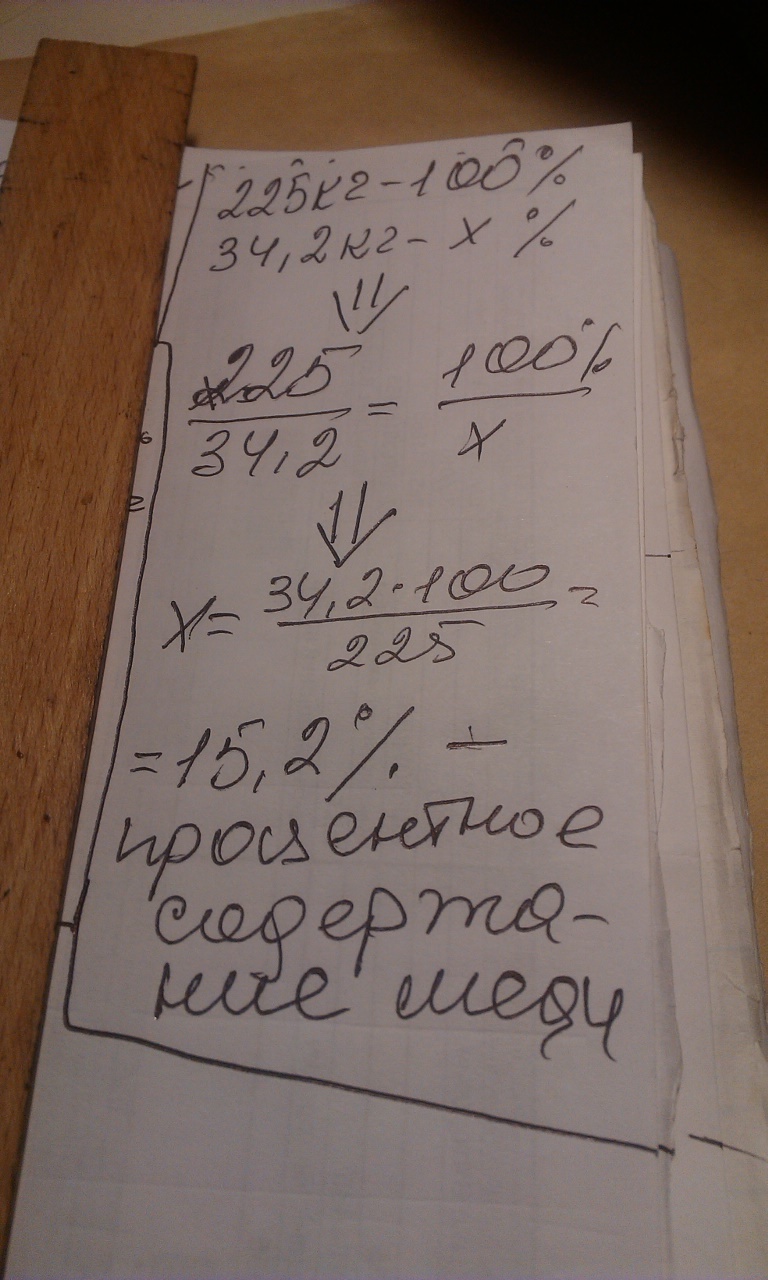 225кг-100%
34,2кг- x %
⇓
225/34,2 = 100%/x
⇓
x= 34,2·100/225 =
=15,2%. —
процентное
содержа-
ние меди